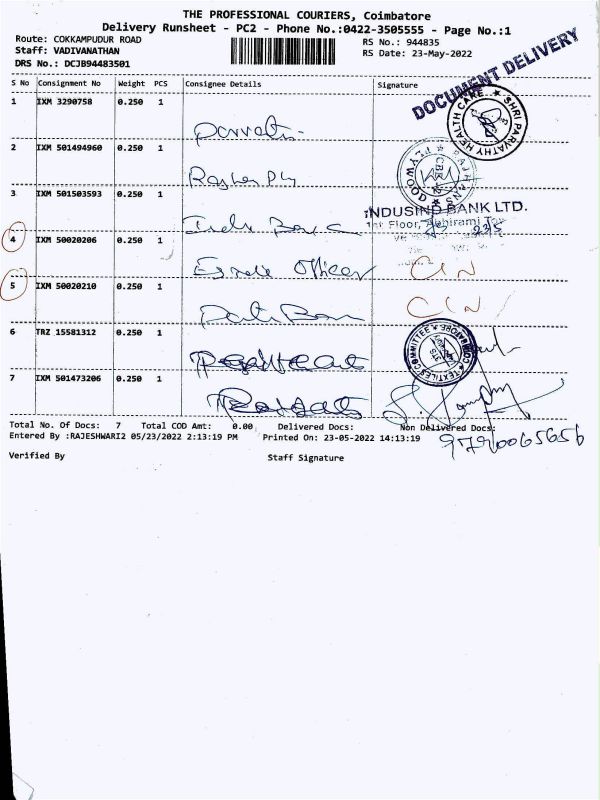 THE PROFESSIONAL COURIERS, Coimbatore
Delivery Runsheet - PC2 - Phone No.:0422-3505555 - Page No.:1
Route: COKKAMPUDUR ROAD
Staff: VADIVANATHAN
DRS No.: DCJB94483501
RS No.: 944835
RS Date: 23-May-2022
DOCUMENT DELIVERY
S No Consignment No Weight PCS Consignee Details Signature
1 IXM 3290758 0.250 1
SHRI PARVATHY HEALTH CARE
2 IXM 501494960 0.250 1
PLYWOOD
3 IXM 501503593 0.250 1
INDUSIND BANK LTD.
1st Floor, Abhirami
4 IXM 50020206 0.250 1 Officer CIN
5 IXM 50020210 0.250 1 CIN
6 TRZ 15581312 0.250 1
TEXTILES COMMITTEE COIMBATORE
7 IXM 501473206 0.250 1
Total No. Of Docs: 7 Total COD Amt: 0.00 Delivered Docs: Non Delivered Docs:
Entered By :RAJESHWARI2 05/23/2022 2:13:19 PM Printed On: 23-05-2022 14:13:19
Verified By Staff Signature